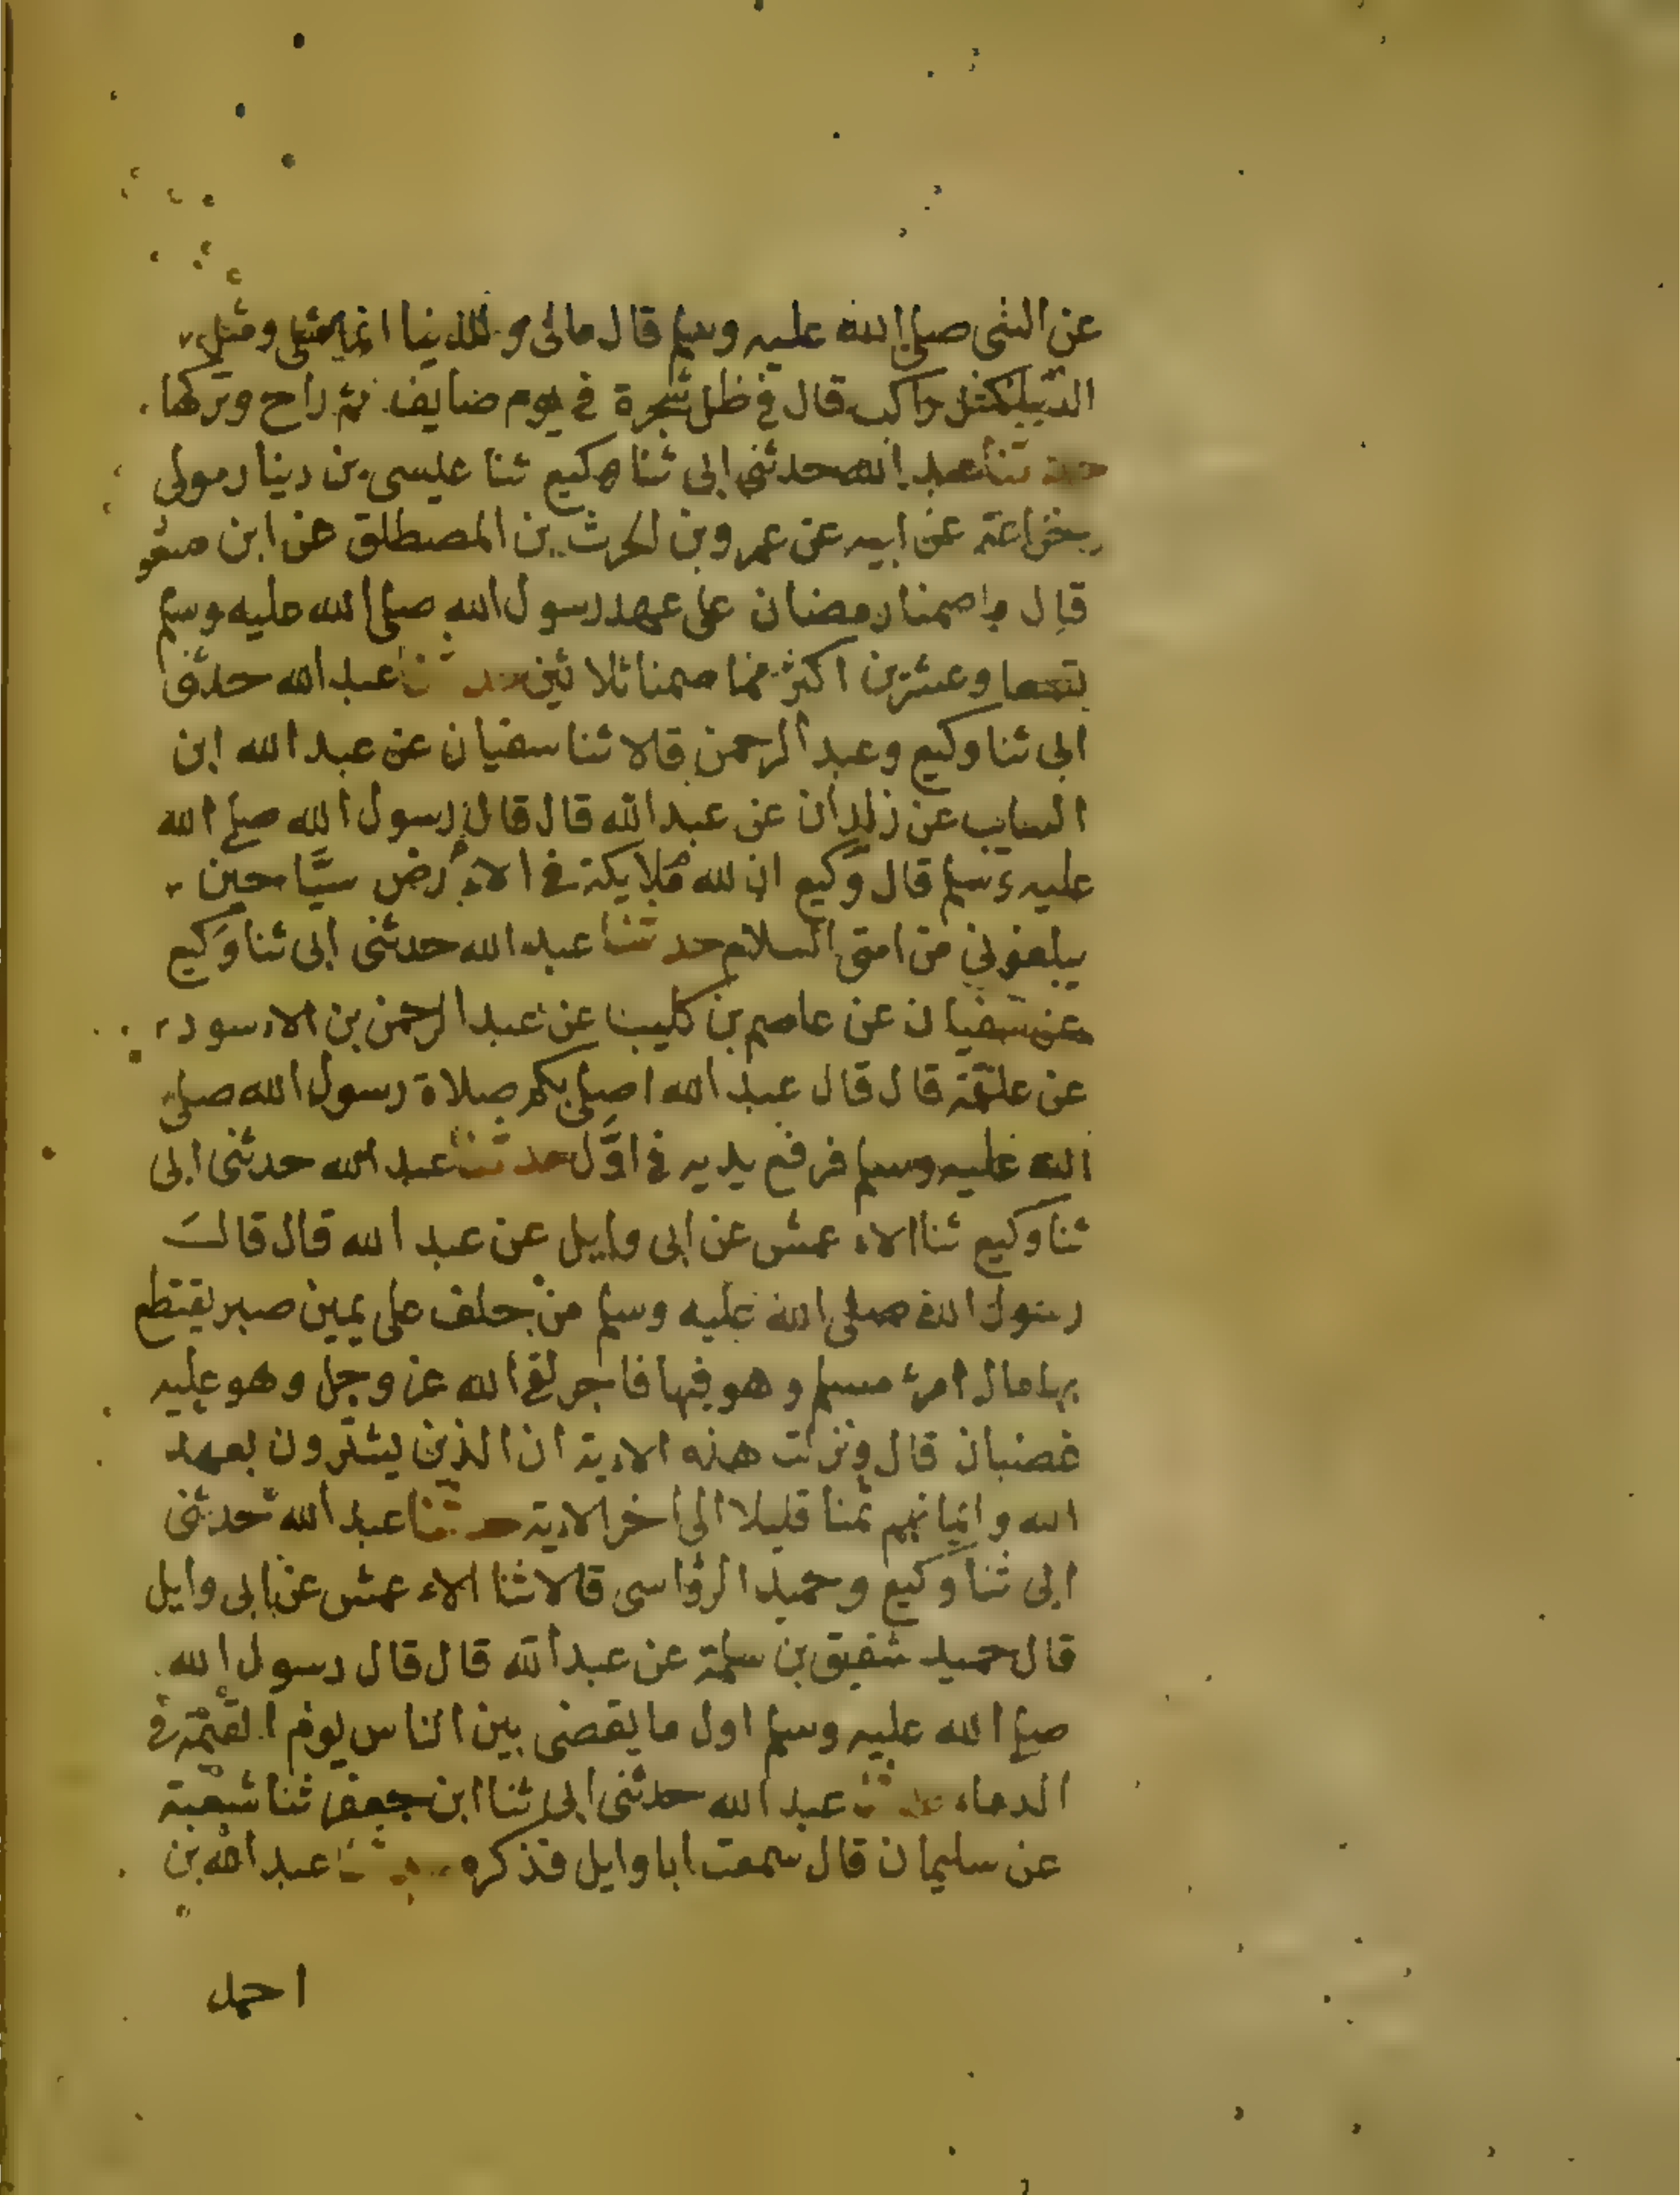 عن النبى صلى الله عليه وسلم قال مالى وللدنيا انما مثلى ومثل
الدنيا كمثل راكب قال فى ظل شجرة فى يوم صايف ثم راح وتركها
حدثنا عبد الله حدثنى ابى ثنا وكيع ثنا عيسى بن دينار مولى
خزاعة عن ابيه عن عمرو بن الحرث بن المصطلق عن ابن مسعو
قال ما صمنا رمضان على عهد رسول الله صلى الله عليه وسلم
تسعا وعشرين اكثر مما صمنا ثلاثين حدثنا عبد الله حدثنى
ابى ثنا وكيع وعبد الرحمن قالا ثنا سفيان عن عبد الله ابن
السايب عن زاذان عن عبد الله قال قال رسول الله صلى الله
عليه وسلم قال وكيع ان لله ملايكة فى الارض سيّاحين
يبلغونى من امتى السلام حدثنا عبد الله حدثنى ابى ثنا وكيع
عن سفيان عن عاصم بن كليب عن عبد الرحمن بن الاسود
عن علقمة قال قال عبد الله اصلى بكم صلاة رسول الله صلى
الله عليه وسلم فرفع يديه فى اوّل حدثنا عبد الله حدثنى ابى
ثنا وكيع ثنا الاعمش عن ابى وايل عن عبد الله قال قال
رسول الله صلى الله عليه وسلم من حلف على يمين صبر يقتطع
بها مال امرئ مسلم وهو فيها فاجر لقى الله عز وجل وهو عليه
غضبان قال ونزلت هذه الاية ان الذين يشترون بعهد
الله وايمانهم ثمنا قليلا الى اخر الاية حدثنا عبد الله حدثنى
ابى ثنا وكيع وحميد الرؤاسى قالا ثنا الاعمش عن ابى وايل
قال حميد شقيق بن سلمة عن عبد الله قال قال رسول الله
صلى الله عليه وسلم اول ما يقضى بين الناس يوم القيمة فى
الدماء حدثنا عبد الله حدثنى ابى ثنا ابن جعفر ثنا شعبة
عن سليمان قال سمعت ابا وايل فذكره حدثنا عبد الله بن
احمد